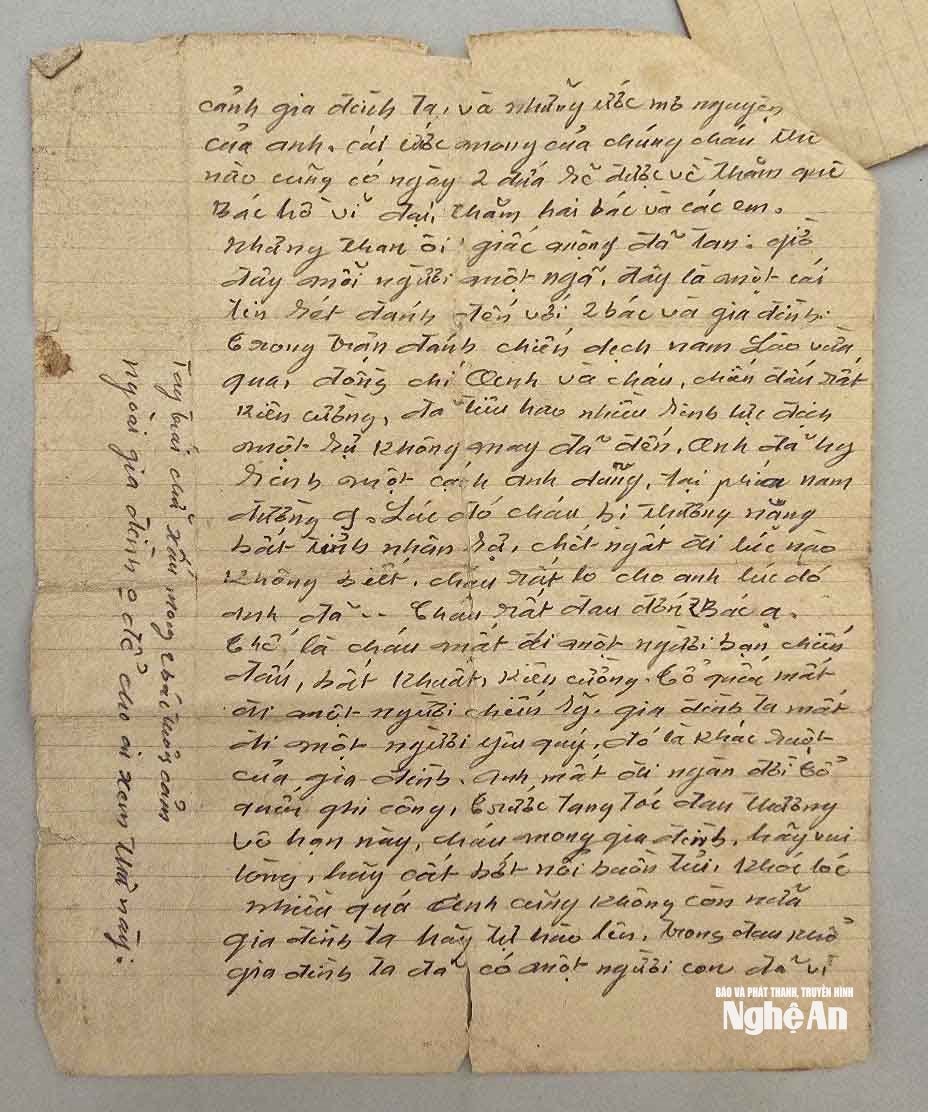 cảnh gia đình ta, và những ước mơ nguyện
của anh. cái ước mong của chúng cháu thế
nào cũng có ngày 2 đứa sẽ được về thăm quê
Bác hồ vĩ đại, thăm hai bác và các em.
Nhưng than ôi giấc mộng đã tan. giờ
đây mỗi người một ngã, đây là một cái
tin sét đánh đến với 2 bác và gia đình.
Trong trận đánh chiến dịch nam Lào vừa
qua, đồng chí Oanh và cháu, chiến đấu rất
kiên cường, đã tiêu hao nhiều sinh lực địch
một sự không may đã đến, Anh đã hy
sinh một cách anh dũng, tại phía nam
đường 9. Lúc đó cháu bị thương nặng
bất tỉnh nhân sự, chết ngất đi lúc nào
không biết, cháu rất lo cho anh lúc đó
anh đã -- Cháu rất đau đớn 2 Bác ạ.
Thế là cháu mất đi một người bạn chiến
đấu, bất khuất, kiên cường. Tổ quốc mất
đi một người chiến sỹ. gia đình ta mất
đi một người yêu quý, đó là khúc ruột
của gia đình. Anh mất đi ngàn đời Tổ
quốc ghi công, Trước tang tóc đau thương
vô hạn này, cháu mong gia đình, hãy vui
lòng, hãy cất bớt nỗi buồn tủi, khóc lóc
nhiều quá Oanh cũng không còn nữa
gia đình ta hãy tự hào lên, trong đau khổ
gia đình ta đã có một người con đã vì
Tay trái chữ xấu mong 2 bác thông cảm
ngoài gia đình o để cho ai xem thư này.
BÁO VÀ PHÁT THANH, TRUYỀN HÌNH
Nghệ An